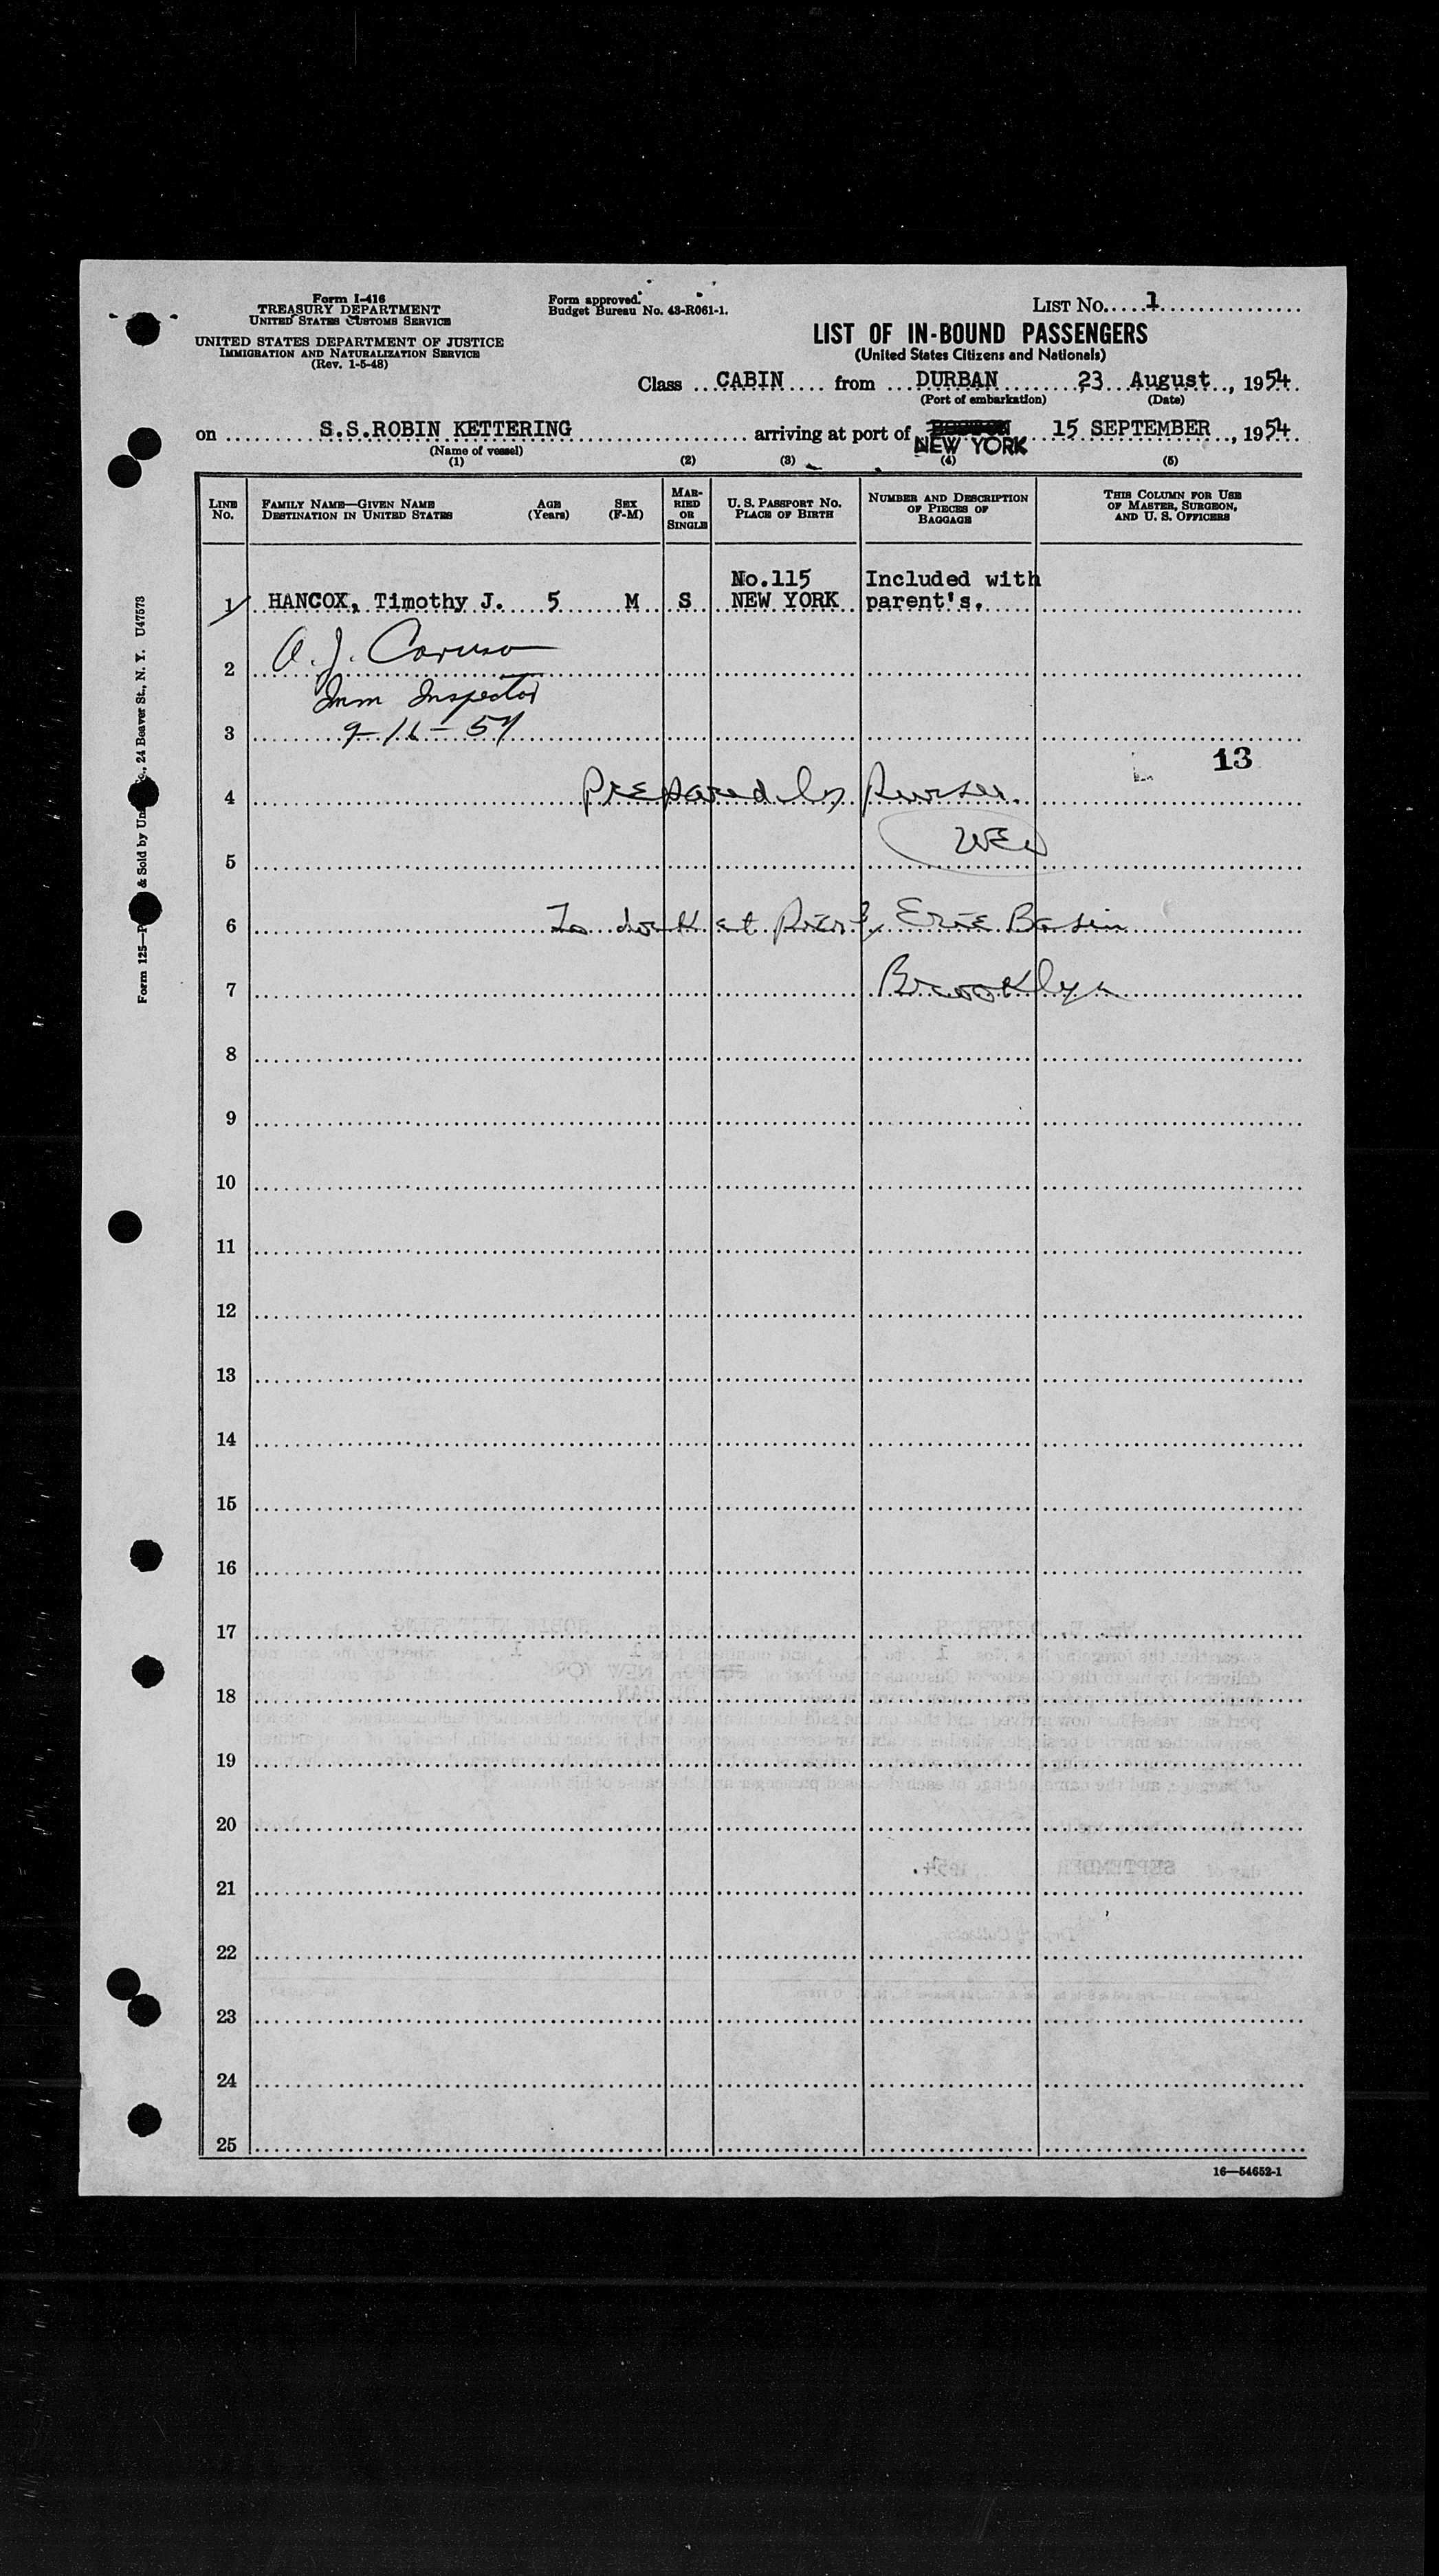 Form I-416
TREASURY DEPARTMENT
UNITED STATES CUSTOMS SERVICE
UNITED STATES DEPARTMENT OF JUSTICE
IMMIGRATION AND NATURALIZATION SERVICE
(Rev. 1-5-48)
Form approved.
Budget Bureau No. 43-R061-1.
LIST No. 1
LIST OF IN-BOUND PASSENGERS
(United States Citizens and Nationals)
Class CABIN from DURBAN 23 August, 1954
(Port of embarkation) (Date)
on S.S.ROBIN KETTERING arriving at port of NEW YORK 15 SEPTEMBER, 1954
(Name of vessel)
(1) (2) (3) (4) (5)
LINE No. FAMILY NAME—GIVEN NAME DESTINATION IN UNITED STATES AGE (Years) SEX (F-M) MARRIED OR SINGLE U. S. PASSPORT NO. PLACE OF BIRTH NUMBER AND DESCRIPTION OF PIECES OF BAGGAGE THIS COLUMN FOR USE OF MASTER, SURGEON, AND U. S. OFFICERS
No.115 Included with
1 HANCOX, Timothy J. 5 M S NEW YORK parent's.
A. J. Caruso
2
Imm Inspector
3 9-16-54
13
4 Prepared by Purser.
WEW
5
6 To dock at Pier Erie Basin
7 Brooklyn
8
9
10
11
12
13
14
15
16
17
18
19
20
21
22
23
24
25
16—54652-1
Form 125—P & Sold by Un Co., 24 Beaver St., N. Y. U47573